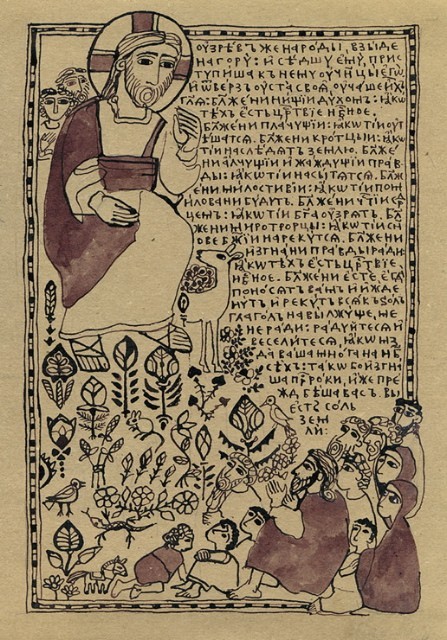 оузрѣвъ же народы, взыде
на гору: и сѣдшу ему, прис
тупиша къ нему оученицы его.
и ѿверзъ оуста своѧ, оучаше ихъ
глѧ: блаже́ни нищии духомъ: ꙗкѡ
тѣхъ есть црⷭтвїе нбⷭное.
блажени плачущии: ꙗкѡ тїи оут
ѣшатсѧ. блажени кротцыи: ꙗкѡ
тїи наслѣдѧтъ землю. блаже
ни алчущїи и жаждущїи прав
ды: ꙗкѡ тїи насытѧтсѧ. блаж
ени милостивїи: ꙗкѡ тїи пом
иловани будутъ. блажени чтїи се
рⷣцемъ: ꙗкѡ тїи бга оузрѧтъ. бла
жени миротворцы: ꙗкѡ тїи сн
ове бжїи нарекутсѧ. блажени
изгнани правды ради:
ꙗкѡ тѣхъ есть црⷭтвїе
нбⷭное. блажени есте егда
поносѧтъ вамъ и ижде
нутъ и рекутъ всѧкъ золъ
глаголъ на вы лжуще, ме
не ради: радуйтесѧ и
веселитесѧ, ꙗкѡ мз
да ваша многа на нб
сѣхъ: такѡ бо изгн
аша прⷪроки, иже преж
де бѣша васъ. вы
есть соль
зем
ли: